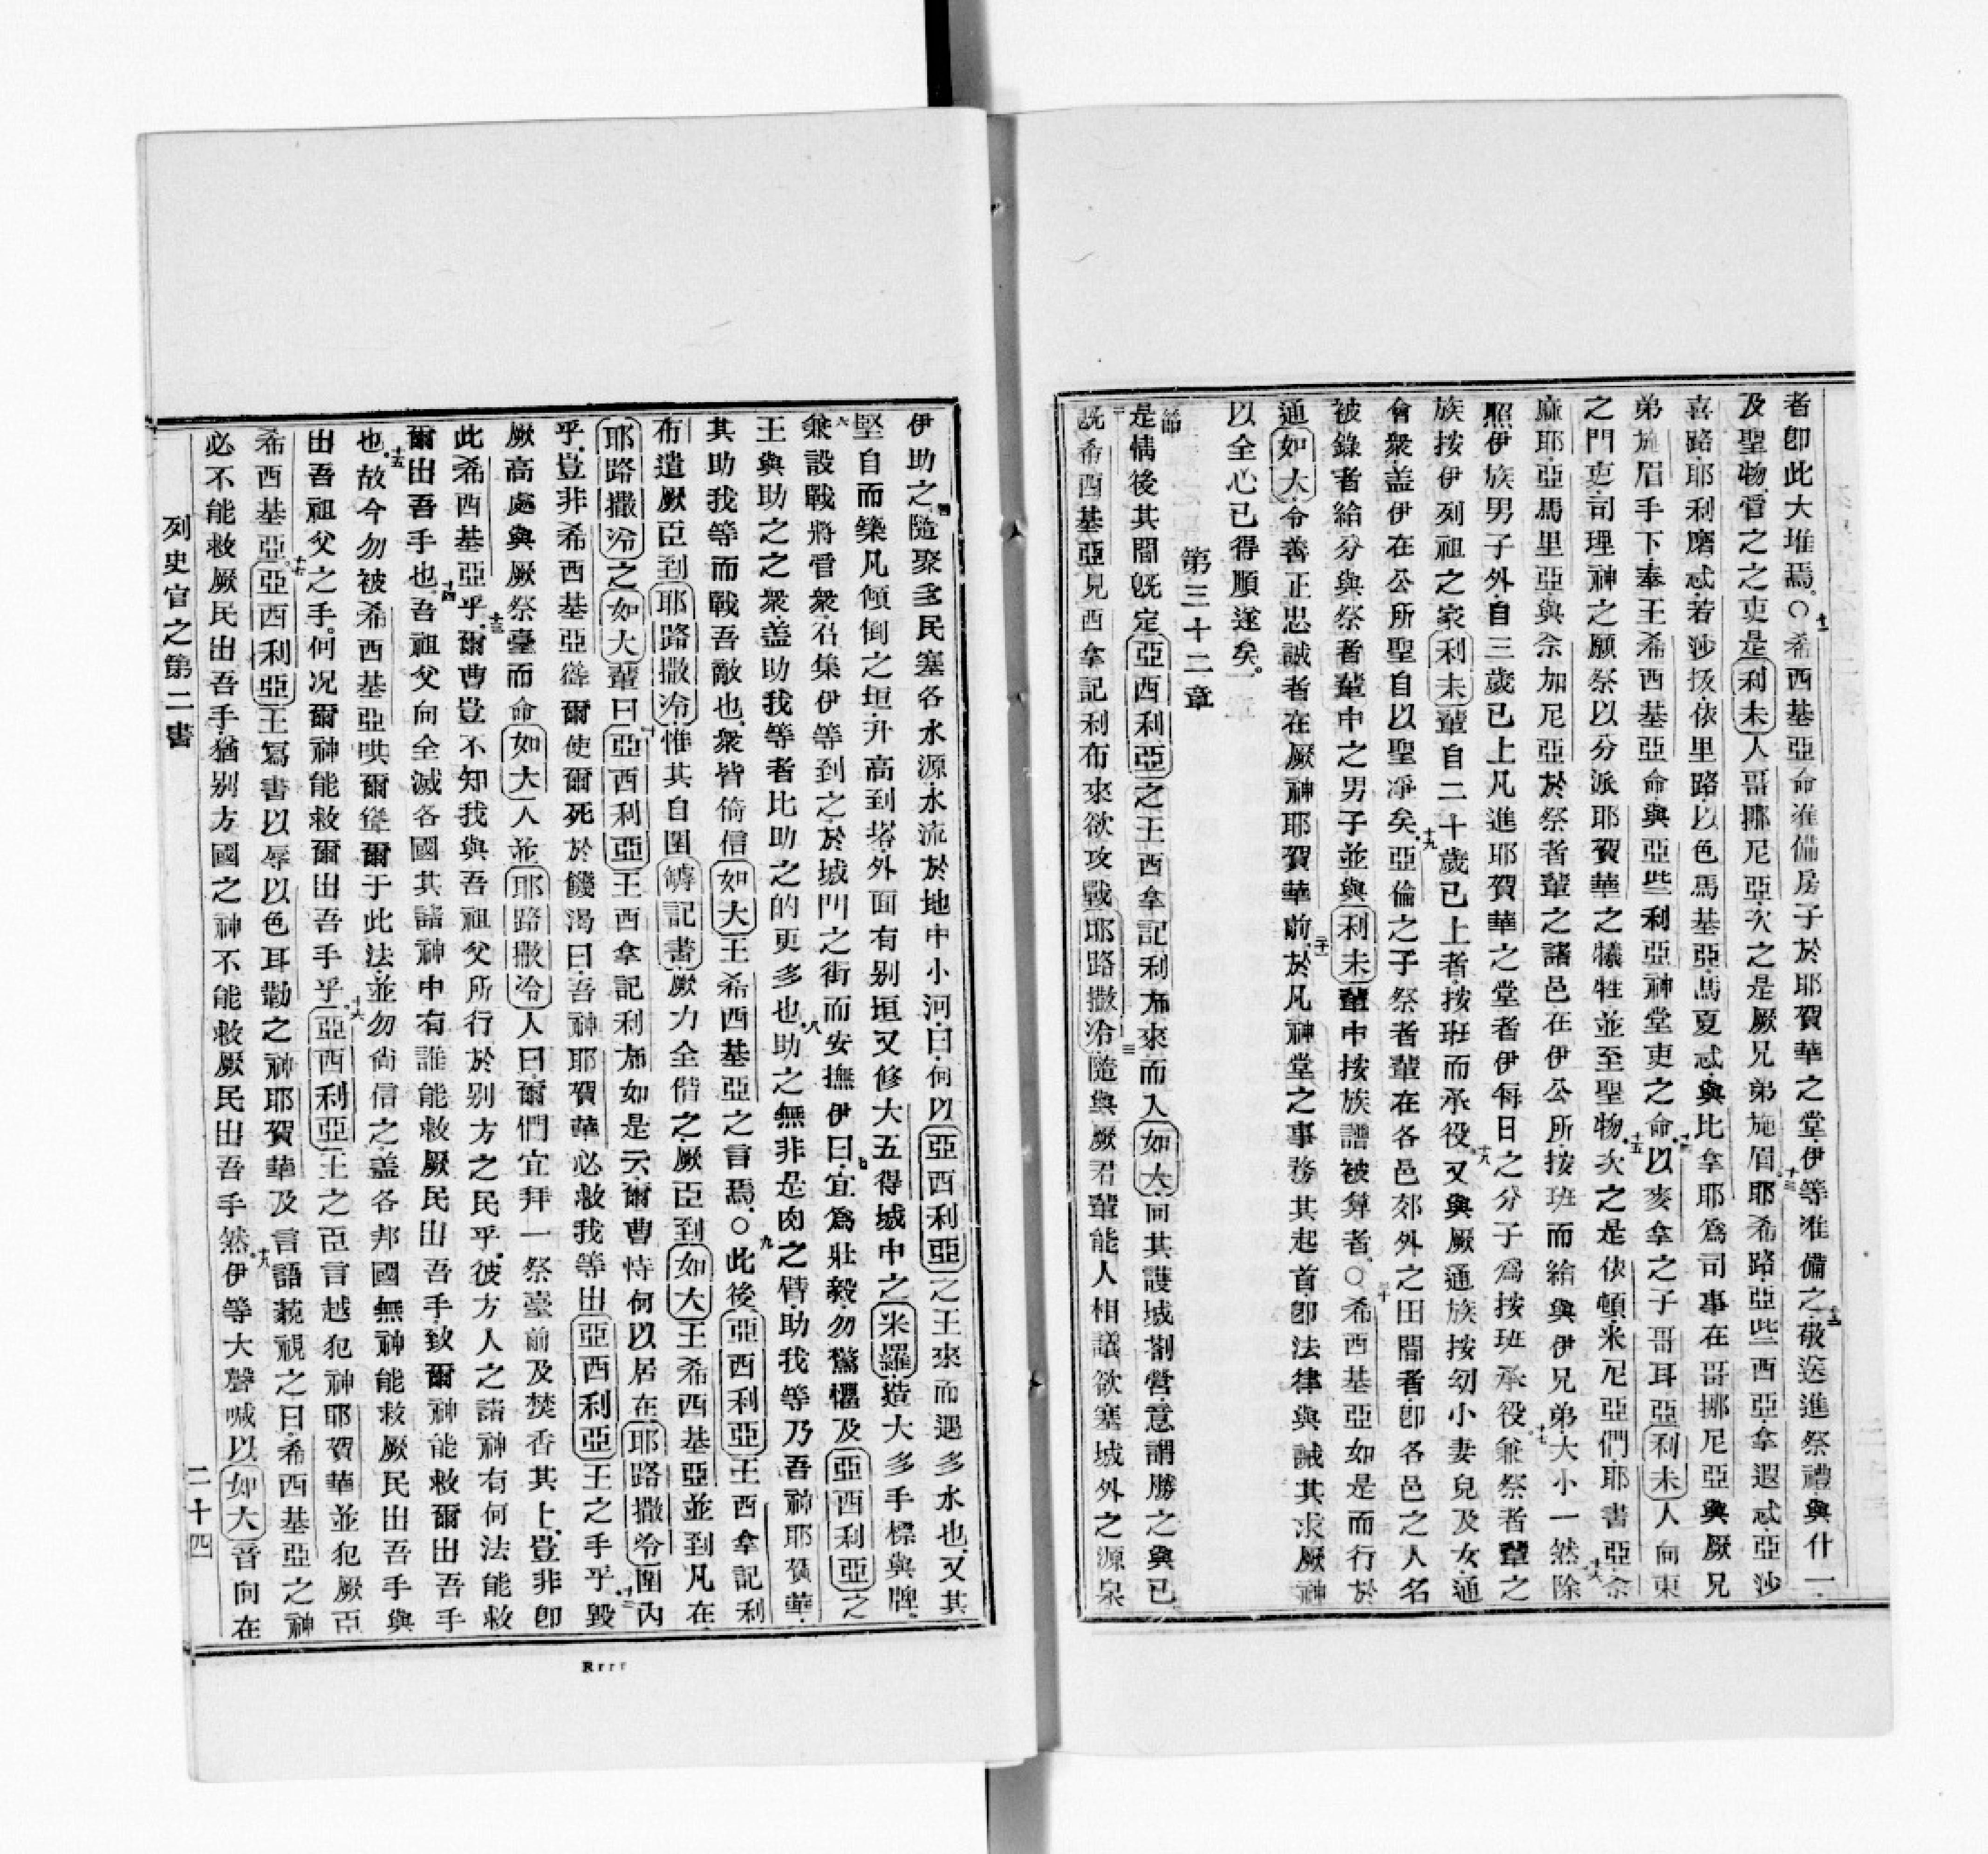 者卽此大堆焉。○十一希西基亞命准備房子於耶賀華之堂伊等准備之十二敬送進祭禮與什一
及聖物管之之吏是利未人哥挪尼亞次之是厥兄弟施眉十三耶希路亞些西亞拿遐忒亞沙
喜路耶利磨忒若沙抜依里路以色馬基亞馬夏忒與比拿耶爲司事在哥挪尼亞與厥兄
弟施眉手下奉王希西基亞命與亞些利亞神堂吏之命十四以亥拿之子哥耳亞利未人向東
之門吏司理神之願祭以分派耶賀華之犧牲並至聖物十五次之是依頓米尼亞們耶書亞佘
麻耶亞馬里亞與佘加尼亞於祭者輩之諸邑在伊公所按班而給與伊兄弟大小一然十六除
照伊族男子外自三歲已上凡進耶賀華之堂者伊每日之分子爲按班承役十七兼祭者輩之
族按伊列祖之家利未輩自二十歲已上者按班而承役十八又與厥通族按幼小妻兒及女通
會衆蓋伊在公所聖自以聖凈矣十九亞倫之子祭者輩在各邑郊外之田間者卽各邑之人名
被錄者給分與祭者輩中之男子並與利未輩中按族譜被算者。○二十希西基亞如是而行於
通如大令善正忠誠者在厥神耶賀華前二十一於凡神堂之事務其起首卽法律與誡其求厥神
以全心已得順遂矣。
第三十二章
節一是情後其間旣定亞西利亞之王西拿記利布來而入如大向其護城劄營意謂勝之與已
二旣希西基亞見西拿記利布來欲攻戰耶路撒冷三隨與厥君輩能人相議欲塞城外之源泉
伊助之四隨聚多民塞各水源水流於地中小河曰何以亞西利亞之王來而遇多水也又其
堅自而築凡傾倒之垣升高到塔外面有別垣又修大五得城中之米羅造大多手標與牌
六兼設戰將管衆召集伊等到之於城門之街而安撫伊曰七宜爲壯毅勿驚懼及亞西利亞之
王與助之之衆蓋助我等者比助之的更多也八助之無非是肉之臂助我等乃吾神耶賀華
其助我等而戰吾敵也衆皆倚信如大王希西基亞之言焉。○九此後亞西利亞王西拿記利
布遣厥臣到耶路撒冷惟其自圍罅記書厥力全偕之厥臣到如大王希西基亞並到凡在
耶路撒冷之如大輩曰十亞西利亞王西拿記利布如是云爾曹恃何以居在耶路撒冷圍內
乎十一豈非希西基亞聳爾使爾死於饑渴曰吾神耶賀華必救我等出亞西利亞王之手乎十二毀
厥高處與厥祭臺而命如大人並耶路撒冷人曰爾們宜拜一祭臺前及焚香其上豈非卽
此希西基亞乎十三爾曹豈不知我與吾祖父所行於別方之民乎彼方人之諸神有何法能救
爾出吾手也十四吾祖父向全滅各國其諸神中有誰能救厥民出吾手致爾神能救爾出吾手
也十五故今勿被希西基亞哄爾聳爾于此法並勿尚信之蓋各邦國無神能救厥民出吾手與
出吾祖父之手何况爾神能救爾出吾手乎十六亞西利亞王之臣言越犯神耶賀華並犯厥臣
希西基亞十七亞西利亞王寫書以辱以色耳勸之神耶賀華及言語藐視之曰希西基亞之神
必不能救厥民出吾手猶別方國之神不能救厥民出吾手然十八伊等大聲喊以如大音向在
列史官之第二書 二十四
Rrrr